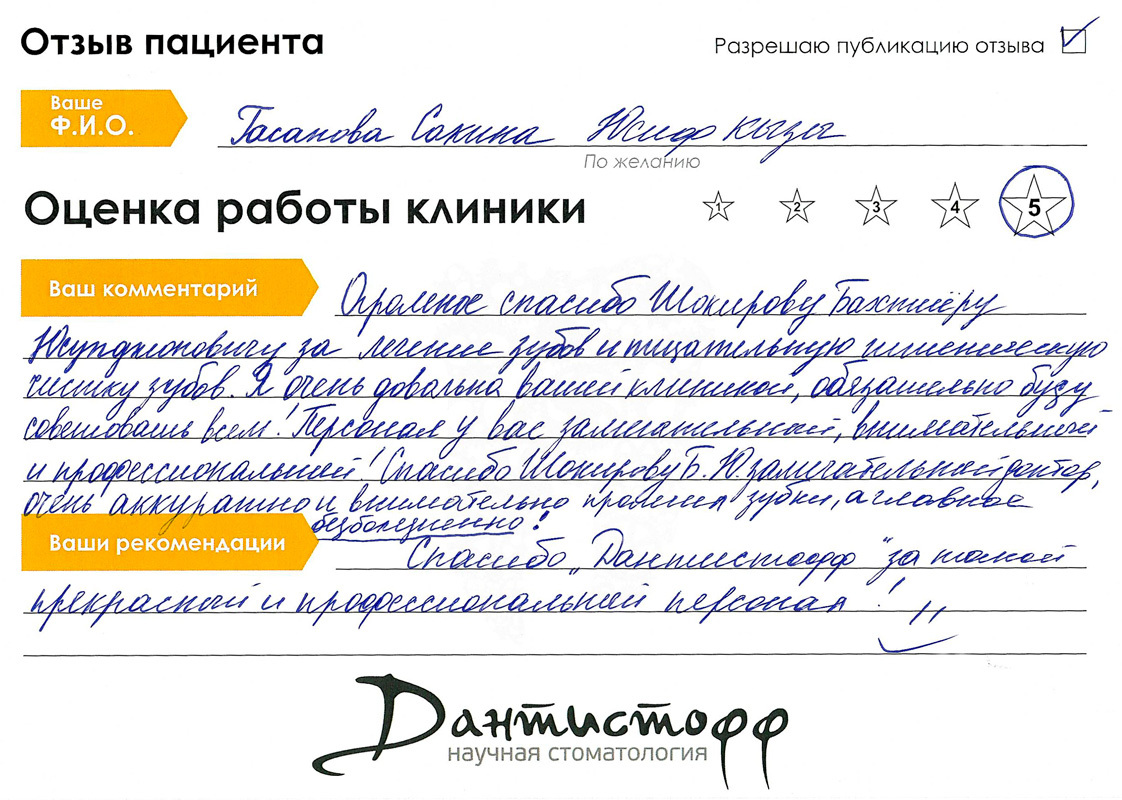 Отзыв пациента
Разрешаю публикацию отзыва
Ваше
Ф.И.О.
Гасанова Сакина Юсиф кызы
По желанию
Оценка работы клиники
1 2 3 4 5
Ваш комментарий
Огромное спасибо Шокирову Бахтиёру
Юсупджоновичу за лечение зубов и тщательную гигиеническую
чистку зубов. Я очень довольна вашей клиникой, обязательно буду
советовать всем! Персонал у вас замечательный, внимательный
и профессиональный! Спасибо Шокирову Б.Ю. замечательный доктор,
очень аккуратно и внимательно пролечил зубки, а главное
безболезненно!
Ваши рекомендации
Спасибо „Дантистофф" за такой
прекрасный и профессиональный персонал!
Дантистофф
научная стоматология